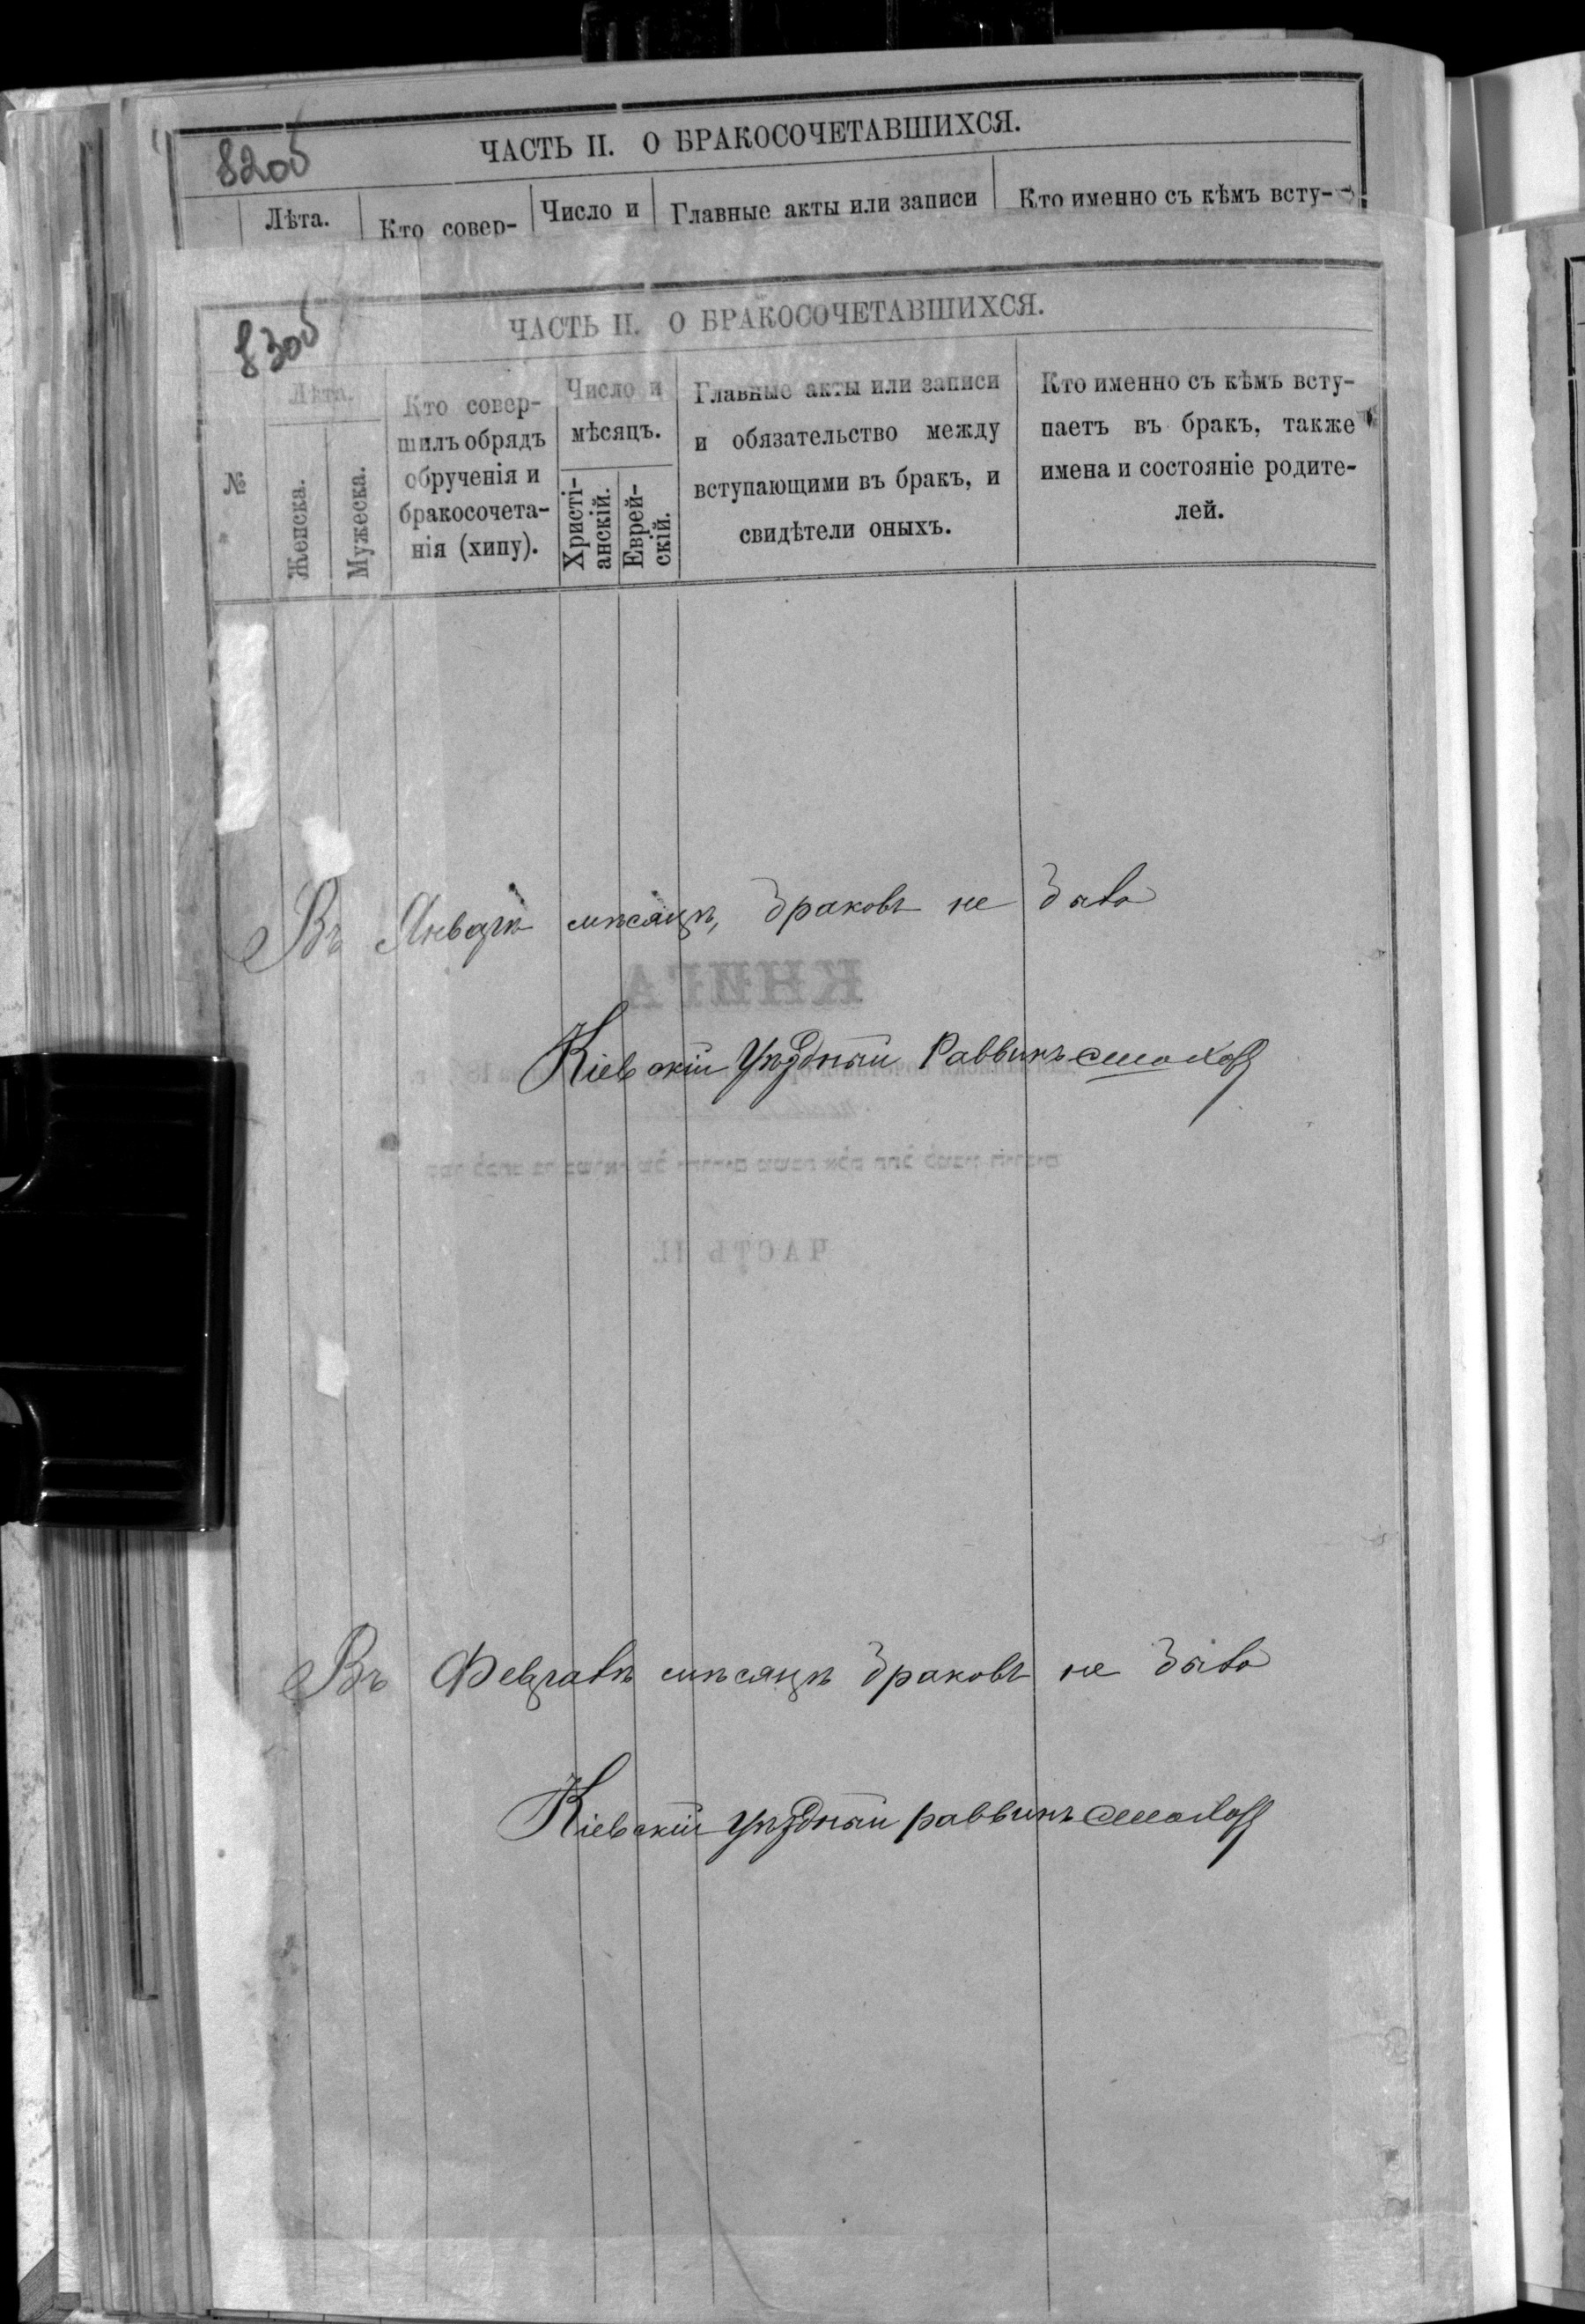 820б
ЧАСТЬ II. О БРАКОСОЧЕТАВШИХСЯ.
Лѣта.
Кто совер-
Число и
Главные акты или записи
Кто именно съ кѣмъ всту-
830б
ЧАСТЬ II. О БРАКОСОЧЕТАВШИХСЯ.
№
Лѣта.
Женска.
Мужеска.
Кто совер-
шилъ обрядъ
обрученія и
бракосочета-
нія (хипу).
Число и
мѣсяцъ.
Христі-
анскій.
Еврей-
скій.
Главные акты или записи
и обязательство между
вступающими въ бракъ, и
свидѣтели оныхъ.
Кто именно съ кѣмъ всту-
паетъ въ бракъ, также
имена и состояніе родите-
лей.
Въ Январѣ мѣсяцѣ, браковъ не было
КНИГА
Кіевскій Уѣздный Раввинъ
ЧАСТЬ II.
Въ Февралѣ мѣсяцѣ браковъ не было
Кіевскій Уѣздный раввинъ